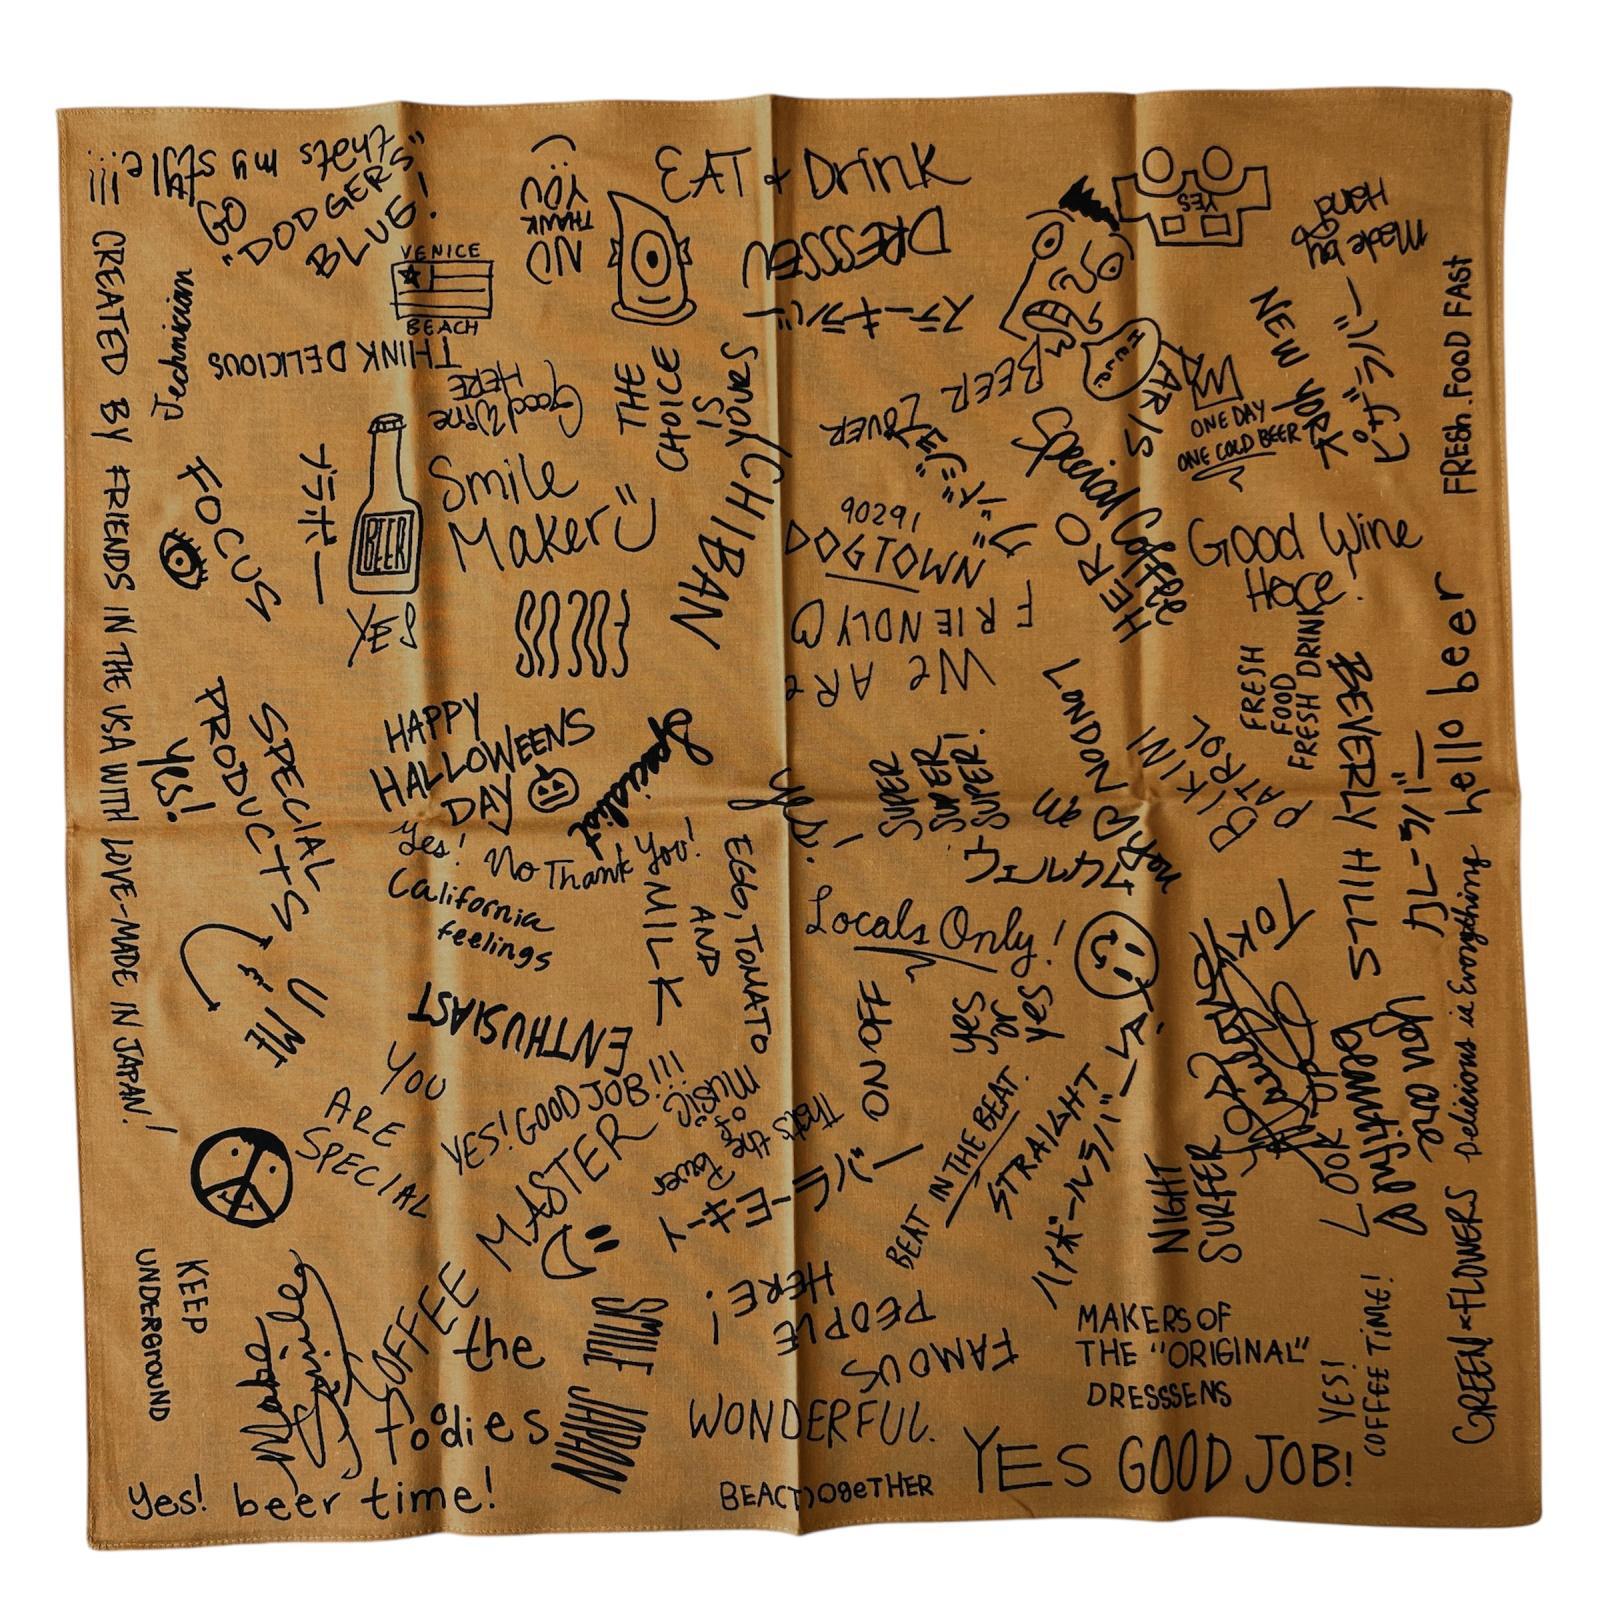 thats my style !!!
GO
"DODGERS"
BLUE!
VENICE
BEACH
NO
THANK
YOU
EAT & Drink
DRESSSEN
ステーキラバー
YES
Made by
HAND
FRESH.FOOD FAST
CREATED BY FRIENDS IN THE USA WITH LOVE-MADE IN JAPAN!
Technician
THINK DELICIOUS
Good Wine
HERE
THE
CHOICE
IS
Yours
ICHIBAN
BEER LOVER
PARIS
ONE DAY
ONE COLD BEER
NEW YORK
ピザラバー
FOCUS
ブラボー
BEER
YES
Smile
Maker
FOCUS
90291
DOGTOWN
WE ARE
FRIENDLY
HERO
Special Coffee
Good Wine
Here!
FRESH
FOOD
FRESH DRINK
BEVERLY HILLS
hello beer
SPECIAL
PRODUCTS
Yes!
HAPPY
HALLOWEENS
DAY
Specialist
Yes! No Thank You!
California
feelings
EGG, TOMATO
AND
MILK
yes!
SUPER
SUPER
SUPER!
LONDON
BIKINI
PATROL
ウェルカム
カレーラバー
Locals Only!
U & ME
ENTHUSIAST
YOU
ARE
SPECIAL
YES! GOOD JOB!!!
MASTER
That's the Power
of
MUSIC
ON OFF
yes
or
yes
BEAT IN THE BEAT.
STRAIGHT
ハイボールラバー
NIGHT
SURFER
LOOK UP
you are
beautiful
Delicious is Everything
GREEN & FLOWERS
KEEP
UNDERGROUND
Make
Smiles
COFFEE
the
fodies
SMILE JAPAN
FAMOUS
PEOPLE
HERE!
WONDERFUL.
MAKERS OF
THE "ORIGINAL"
DRESSSENS
YES!
COFFEE TIME!
Yes! beer time!
YES GOOD JOB!